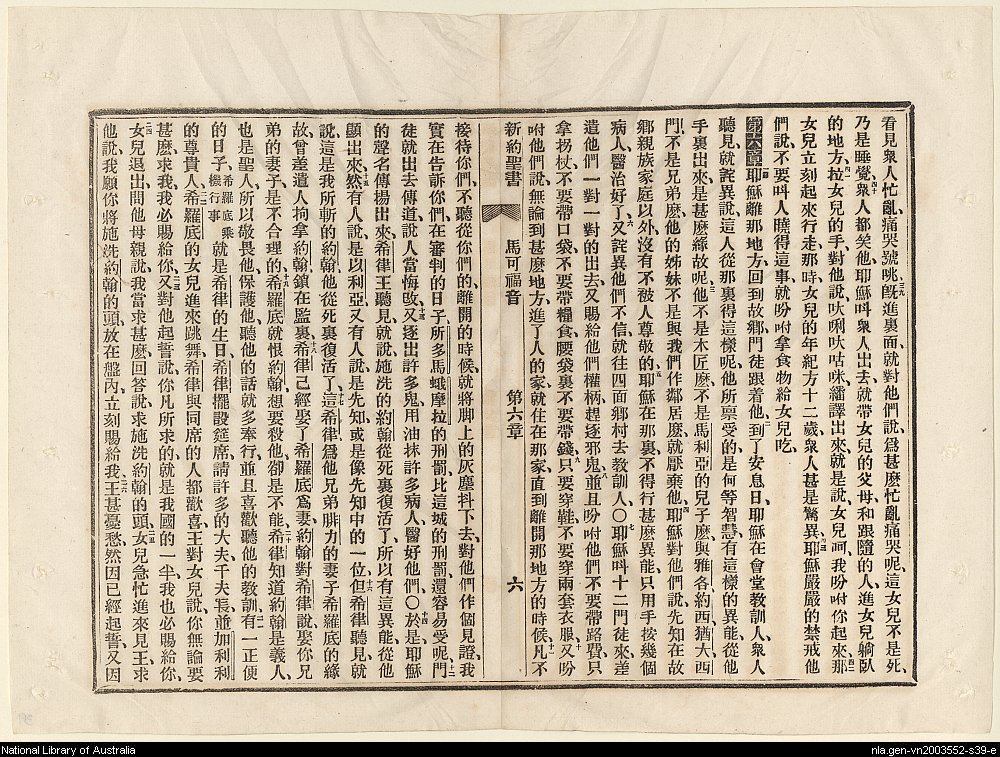 看見衆人忙亂、痛哭號咷、三九旣進裏面、就對他們說、爲甚麽忙亂痛哭呢、這女兒不是死、
乃是睡覺、四十衆人都笑他、耶穌呌衆人出去、就帶女兒的父母、和跟隨的人、進女兒躺臥
的地方、四一拉女兒的手、對他說、吠唎吠咕咪、繙譯出來、就是說、女兒呵、我吩咐你起來、四二那
女兒立刻起來行走、那時女兒的年紀方十二歲、衆人甚是驚異、四三耶穌嚴嚴的禁戒他
們說、不要呌人曉得這事、就吩咐拿食物給女兒吃、
第六章一耶穌離那地方、回到故鄉、門徒跟着他、二到了安息日、耶穌在會堂教訓人、衆人
聽見、就詫異說、這人從那裏得這樣呢、他所禀受的、是何等智慧、有這樣的異能、從他
手裏出來、是甚麽緣故呢、三他不是木匠麽、不是馬利亞的兒子麽、與雅各約西猶大西
門、不是兄弟麽、他的姊妹、不是與我們作鄰居麽、就厭棄他、四耶穌對他們說、先知在故
鄉親族家庭以外、沒有不被人尊敬的、五耶穌在那裏不得行甚麽異能、只用手按幾個
病人、醫治好了、六又詫異他們不信、就往四面鄉村去教訓人、〇七耶穌呌十二門徒來、差
遣他們一對一對的出去、又賜給他們權柄、趕逐邪鬼、八並且吩咐他們、不要帶路費、只
拿拐杖、不要帶口袋、不要帶糧食、腰袋裏不要帶錢、九只要穿鞋、不要穿兩套衣服、十又吩
咐他們說、無論到甚麽地方、進了人的家、就住在那家、直到離開那地方的時候、十一凡不
新約聖書 馬可福音 第六章 六
接待你們、不聽從你們的、離開的時候、就將脚上的灰塵抖下去、對他們作個見證、我
實在告訴你們、在審判的日子、所多馬蛾摩拉的刑罰、比這城的刑罰還容易受呢、十二門
徒就出去傳道、說人當悔改、十三又逐出許多鬼、用油抹許多病人、醫好他們、〇十四於是耶穌
的聲名傳揚出來、希律王聽見就說、施洗的約翰從死裏復活了、所以有這異能從他
顯出來、十五然有人說是以利亞、又有人說是先知、或是像先知中的一位、十六但希律聽見、就
說、這是我所斬的約翰、他從死裏復活了、十七這希律爲他兄弟腓力的妻子希羅底的緣
故、曾差遣人拘拿約翰、鎖在監裏、希律己經娶了希羅底爲妻、十八約翰對希律說、娶你兄
弟的妻子、是不合理的、十九希羅底就恨約翰、想要殺他、卻是不能、二十希律知道約翰是義人、
也是聖人、所以敬畏他、保護他、聽他的話、就多奉行、並且喜歡聽他的教訓、二一有一正便
的日子、希羅底乘機行事就是希律的生日、希律擺設筵席、請許多的大夫、千夫長、並加利利
的尊貴人、二二希羅底的女兒進來跳舞、希律與同席的人都歡喜、王對女兒說、你無論要
甚麽求我、我必賜給你、二三又對他起誓說、你凡所求的、就是我國的一半、我也必賜給你、
二四女兒退出、問他母親說、我當求甚麽、回答說、求施洗約翰的頭、二五女兒急忙進來見王、求
他說、我願你將施洗約翰的頭、放在盤內、立刻賜給我、二六王甚憂愁、然因已經起誓、又因
National Library of Australia
nla.gen-vn2003552-s39-e